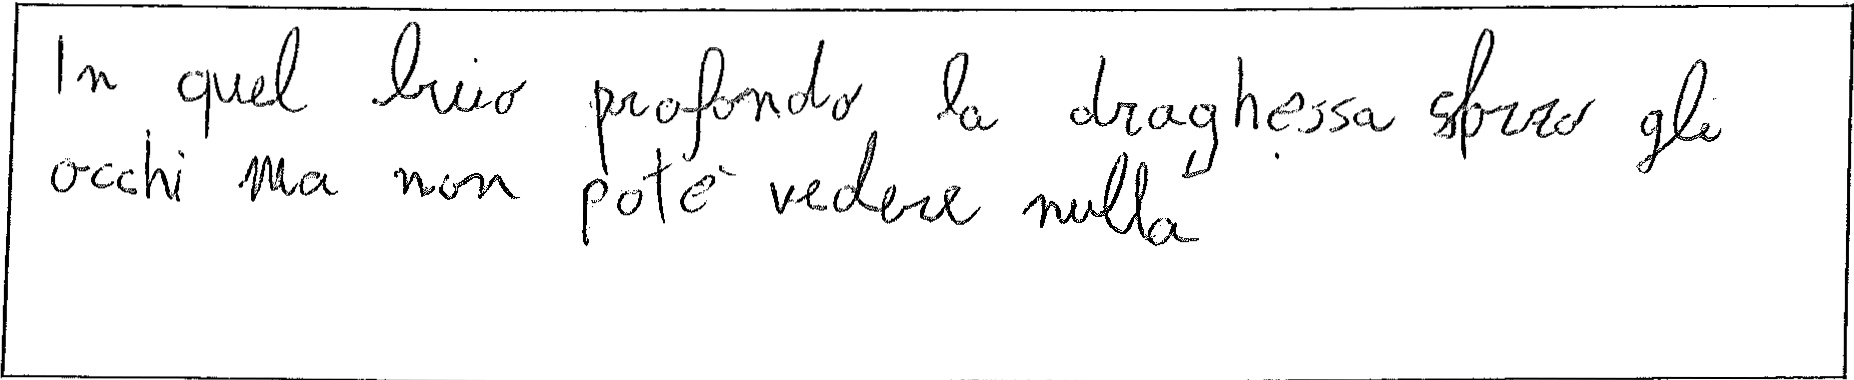 In quel buio profondo la draghessa sforzo gli
occhi ma non potè vedere nulla